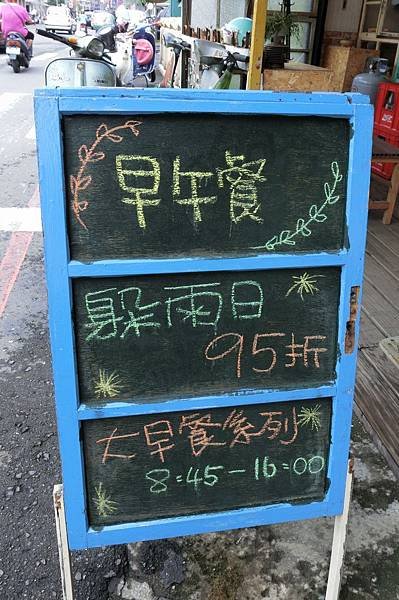 早午餐
躲雨日
95折
大早餐系列
8:45-16:00